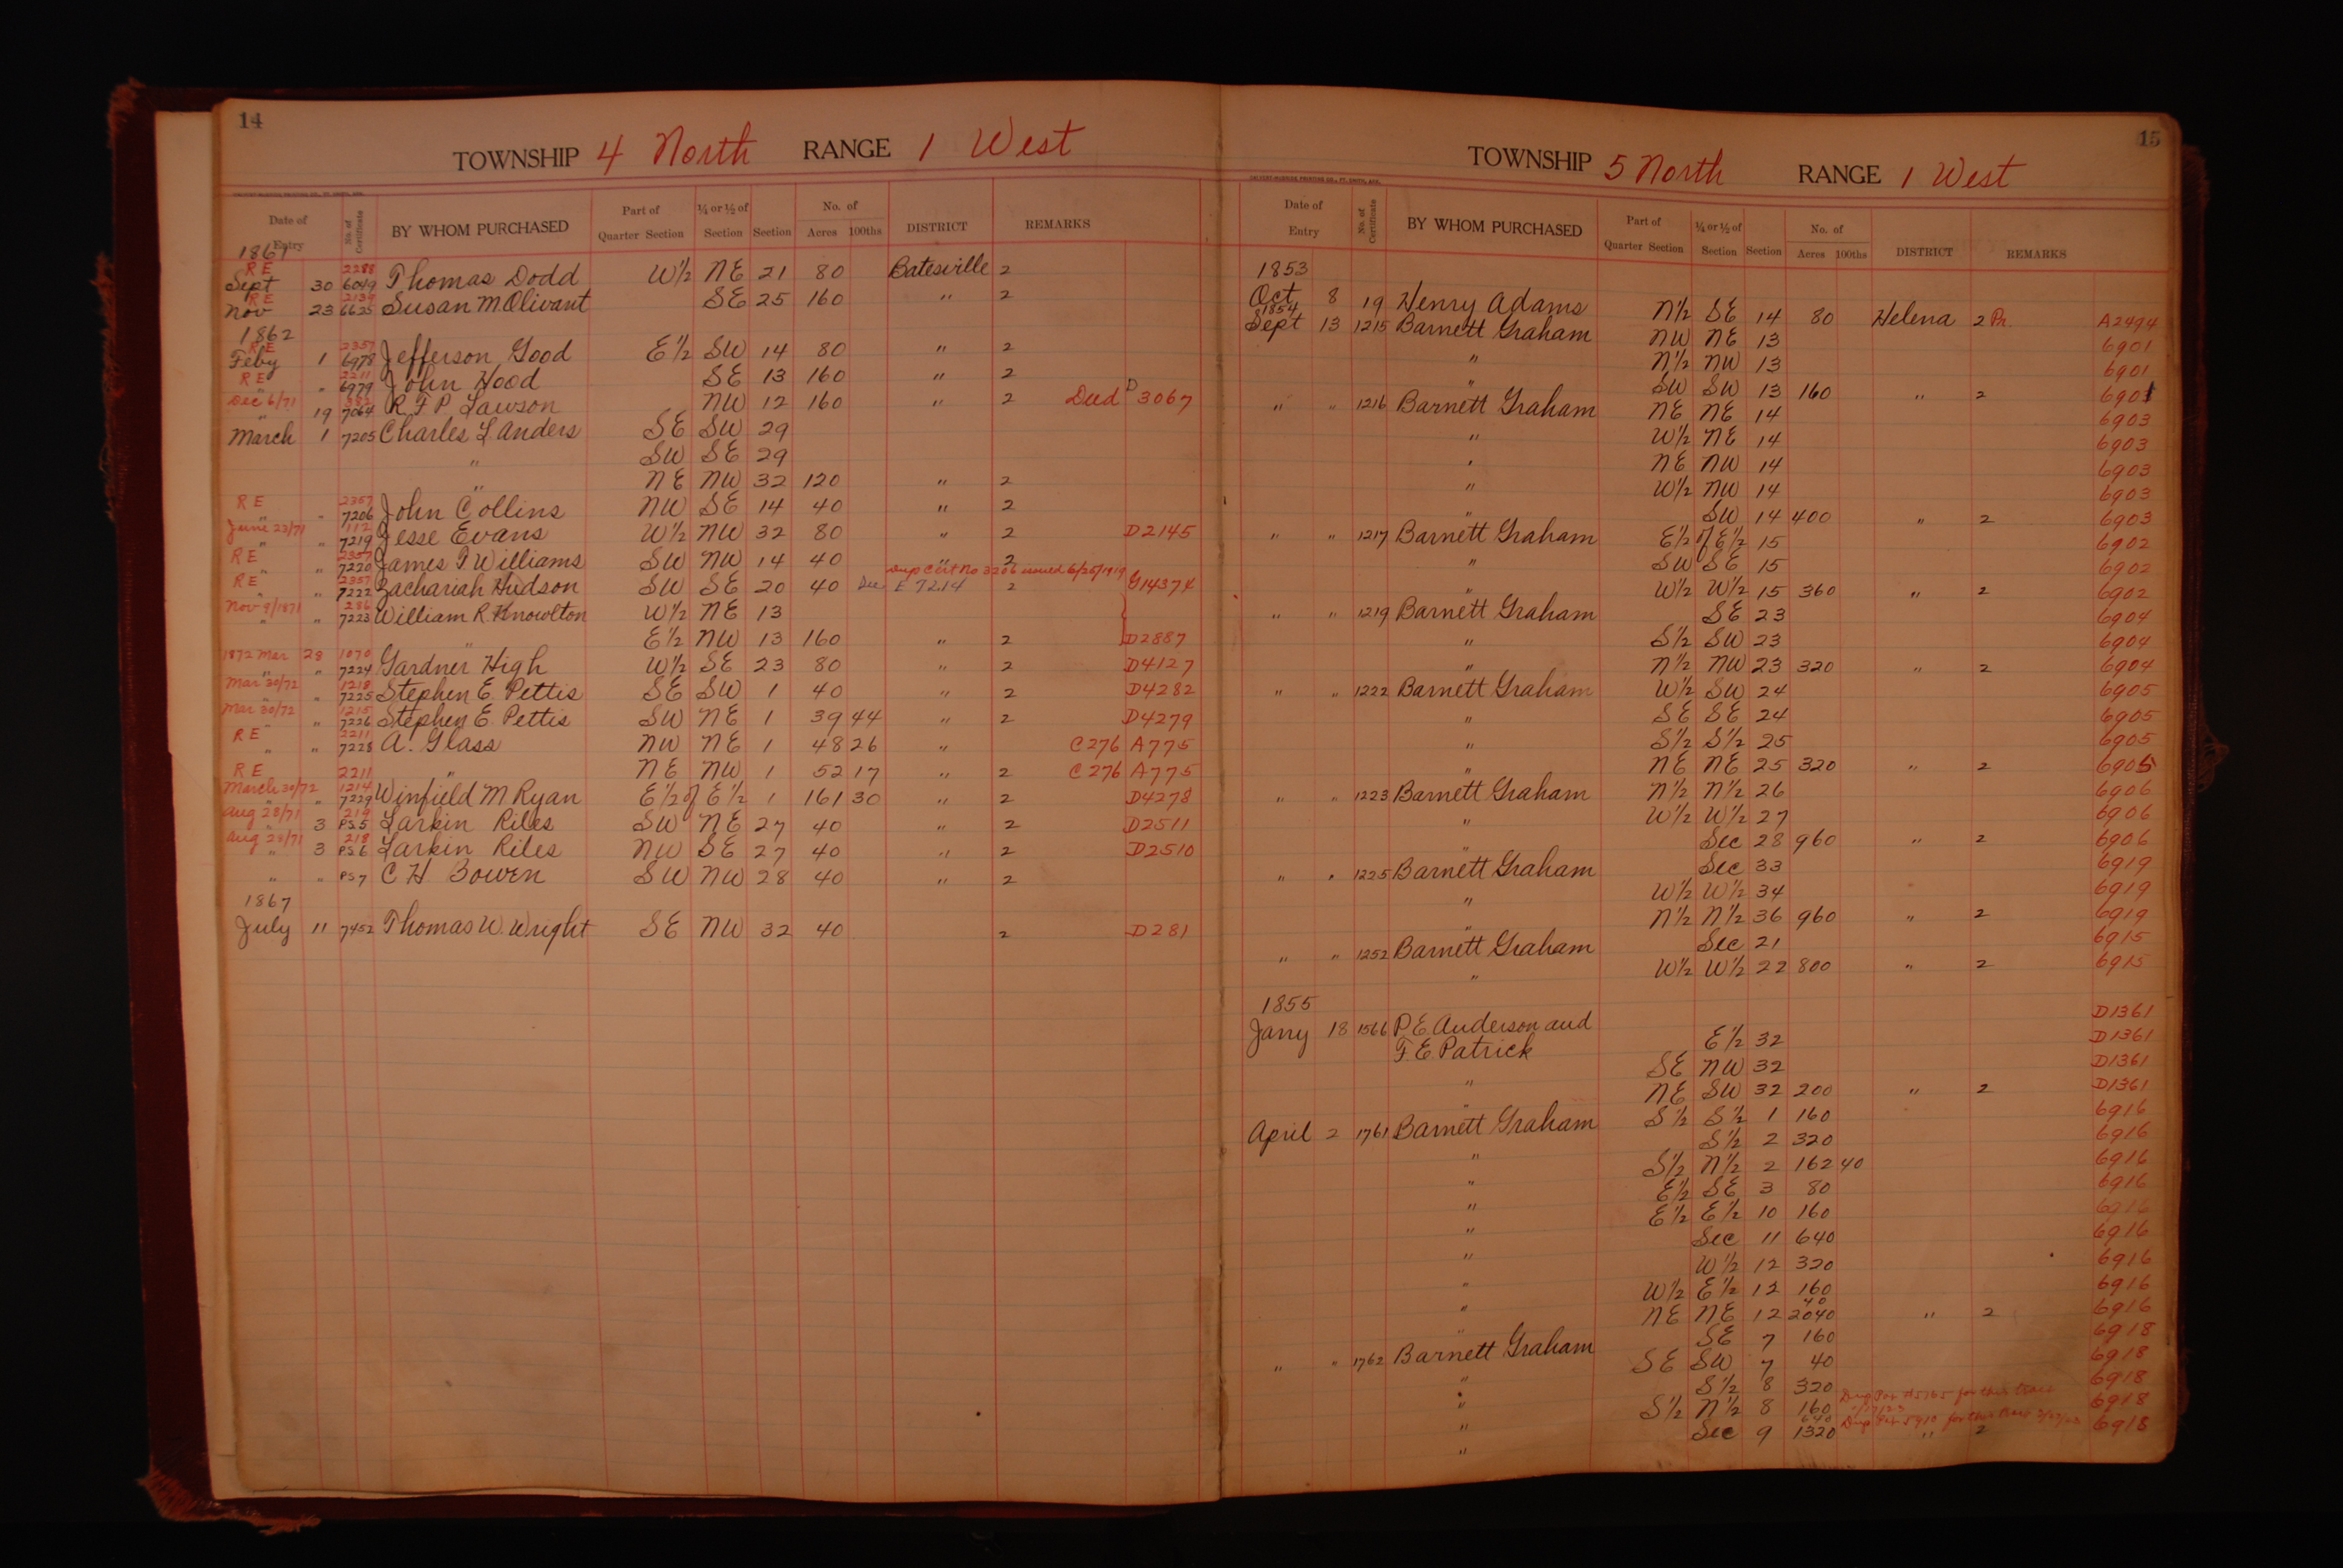 14
TOWNSHIP 4 North RANGE 1 West
CALVERT-McBRIDE PRINTING CO., FT. SMITH, ARK.
Date of Entry No. of Certificate BY WHOM PURCHASED Part of Quarter Section ¼ or ½ of Section Section No. of Acres 100ths DISTRICT REMARKS
1861
R E 2288
Sept 30 6049 Thomas Dodd W½ NE 21 80 Batesville 2
R E 2139
Nov 23 6625 Susan M Olivant SE 25 160 " 2
1862
R E 2357
Feby 1 6978 Jefferson Good E½ SW 14 80 " 2
R E 2211
" " 6979 John Hood SE 13 160 " 2
Dec 6/71 382
" 19 7064 R F P Lawson NW 12 160 " 2 Deed D 3067
March 1 7205 Charles L Anders SE SW 29
" SW SE 29
" NE NW 32 120 " 2
R E 2357
" " 7206 John Collins NW SE 14 40 " 2
June 23/71 112
" " 7219 Jesse Evans W½ NW 32 80 " 2 D2145
R E 2357
" " 7220 James T Williams SW NW 14 40 " 2
Dup Cert No 3206 issued 6/25/1919
R E 2357
" " 7222 Zachariah Hudson SW SE 20 40 See E 7214 2 G14374
Nov 9/1871 286
" " 7223 William R. Knowlton W½ NE 13
" E½ NW 13 160 " 2 D2887
1872 Mar 28 1070
" " 7224 Gardner High W½ SE 23 80 " 2 D4127
Mar 30/72 1218
" " 7225 Stephen E. Pettis SE SW 1 40 " 2 D4282
Mar 30/72 1215
" " 7226 Stephen E. Pettis SW NE 1 39 44 " 2 D4279
R E 2211
" " 7228 A. Glass NW NE 1 48 26 " C276 A775
R E 2211
" NE NW 1 52 17 " 2 C276 A775
March 30/72 1214
" " 7229 Winfield M Ryan E½ of E½ 1 161 30 " 2 D4278
Aug 28/71 219
" 3 PS5 Larkin Riles SW NE 27 40 " 2 D2511
Aug 28/71 218
" 3 PS6 Larkin Riles NW SE 27 40 " 2 D2510
" " PS7 C H. Bowen SW NW 28 40 " 2
1867
July 11 7452 Thomas W. Wright SE NW 32 40 2 D281
15
TOWNSHIP 5 North RANGE 1 West
CALVERT-McBRIDE PRINTING CO., FT. SMITH, ARK.
Date of Entry No. of Certificate BY WHOM PURCHASED Part of Quarter Section ¼ or ½ of Section Section No. of Acres 100ths DISTRICT REMARKS
1853
Oct 8 19 Henry Adams N½ SE 14 80 Helena 2 Pr. A2494
1854
Sept 13 1215 Barnett Graham NW NE 13 6901
" N½ NW 13 6901
" SW SW 13 160 " 2 6901
" " 1216 Barnett Graham NE NE 14 6903
" W½ NE 14 6903
" NE NW 14 6903
" W½ NW 14 6903
" SW 14 400 " 2 6903
" " 1217 Barnett Graham E½ of E½ 15 6902
" SW SE 15 6902
" W½ W½ 15 360 " 2 6902
" " 1219 Barnett Graham SE 23 6904
" S½ SW 23 6904
" N½ NW 23 320 " 2 6904
" " 1222 Barnett Graham W½ SW 24 6905
" SE SE 24 6905
" S½ S½ 25 6905
" NE NE 25 320 " 2 6905
" " 1223 Barnett Graham N½ N½ 26 6906
" W½ W½ 27 6906
" Sec 28 960 " 2 6906
" " 1225 Barnett Graham Sec 33 6919
" W½ W½ 34 6919
" N½ N½ 36 960 " 2 6919
" " 1252 Barnett Graham Sec 21 6915
" W½ W½ 22 800 " 2 6915
1855
D1361
Jany 18 1566 P. E. Anderson and
F. E. Patrick E½ 32 D1361
" SE NW 32 D1361
" NE SW 32 200 " 2 D1361
April 2 1761 Barnett Graham S½ S½ 1 160 6916
" S½ 2 320 6916
" S½ N½ 2 162 40 6916
" E½ SE 3 80 6916
" E½ E½ 10 160 6916
" Sec 11 640 6916
" W½ 12 320 6916
" W½ E½ 12 160 6916
40
" NE NE 12 2040 " 2 6916
" " 1762 Barnett Graham SE 7 160 6918
" SE SW 7 40 6918
" S½ 8 320 6918
" S½ N½ 8 160 Dup Pat for this tract 6918
640
" Sec 9 1320 Dup Pat for this tract " 2 6918